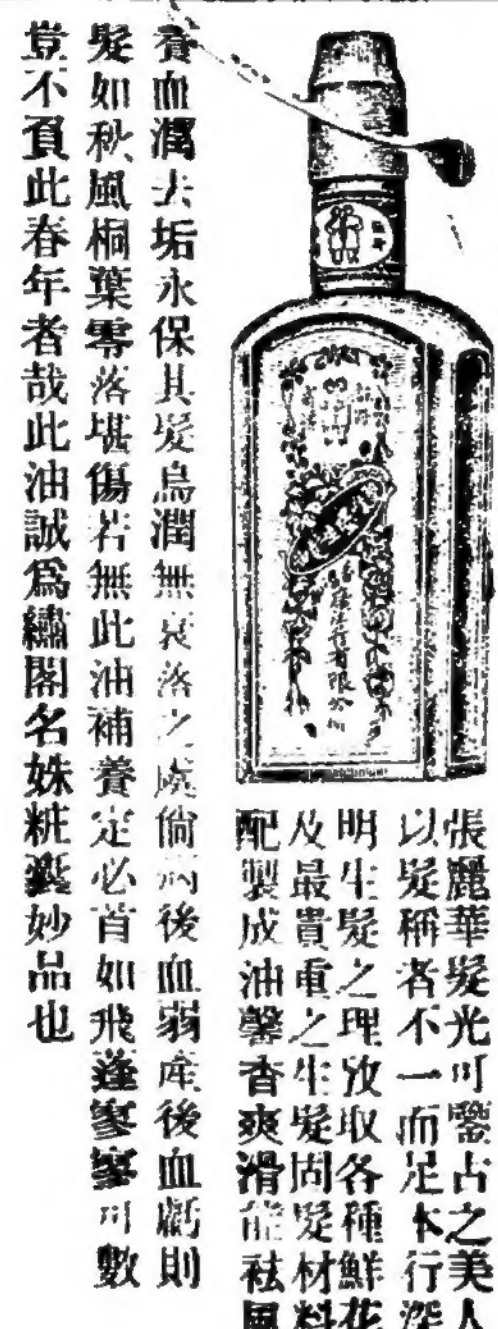 張麗華髮光可鑒古之美人
以髮稱者不一而足本行深
明生髮之理故取各種鮮花
及最貴重之生髮固髮材料
配製成油馨香爽滑能祛風
養血潤去垢永保其髮烏潤無衰落之虞倘病後血弱產後血虧則
髮如秋風桐葉零落堪傷若無此油補養定必首如飛蓬寥寥可數
豈不負此春年者哉此油誠爲繡閣名姝粧奩妙品也